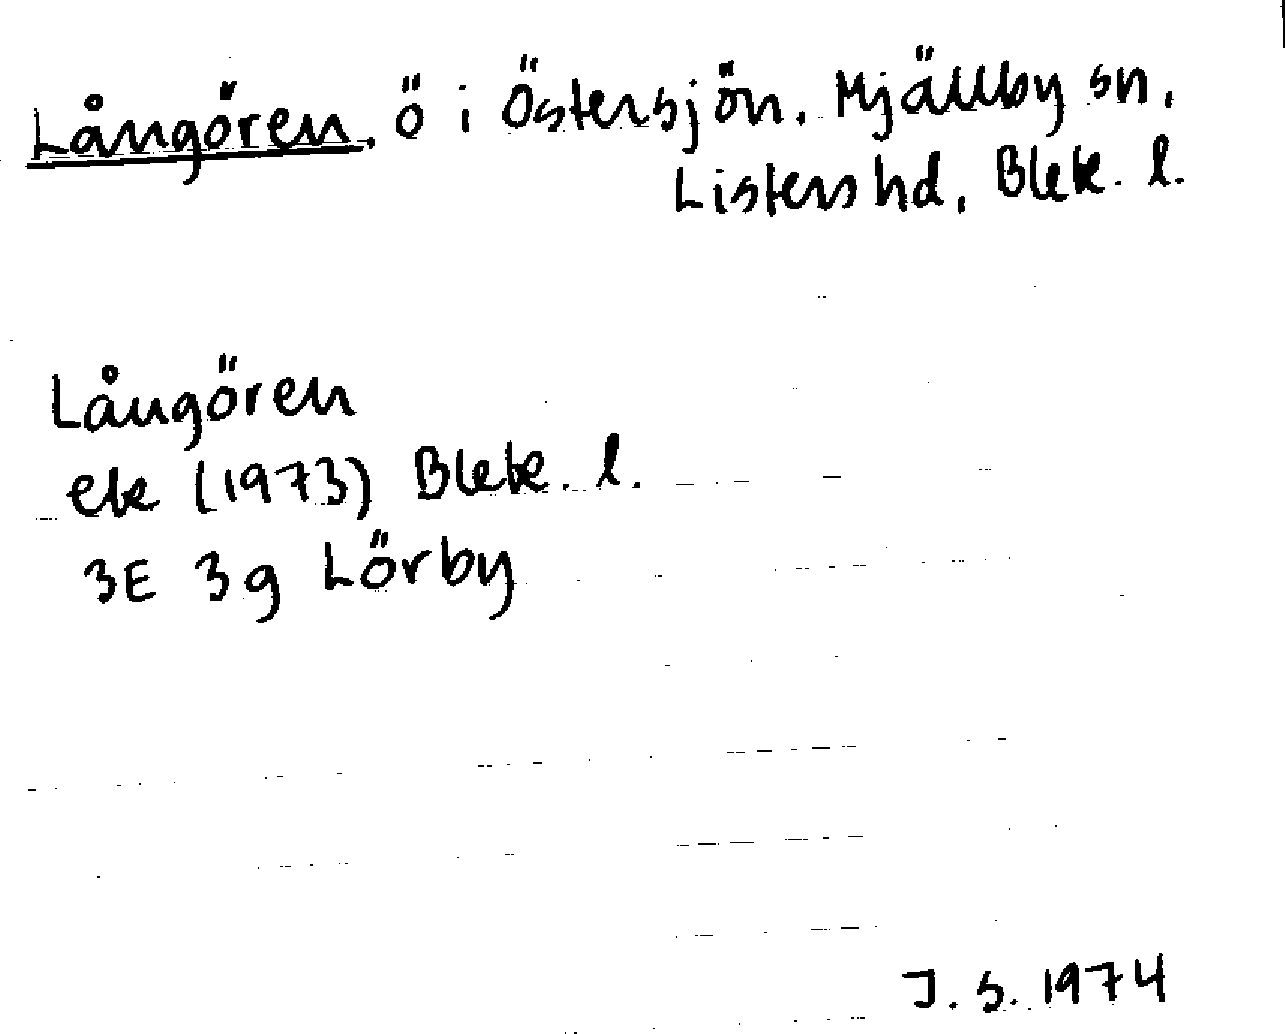 Långören, ö i Östersjön, Mjällby sn,
Listers hd, Blek. l.
Långören
ek (1973) Blek. l.
3E 3g Lörby
J. S. 1974